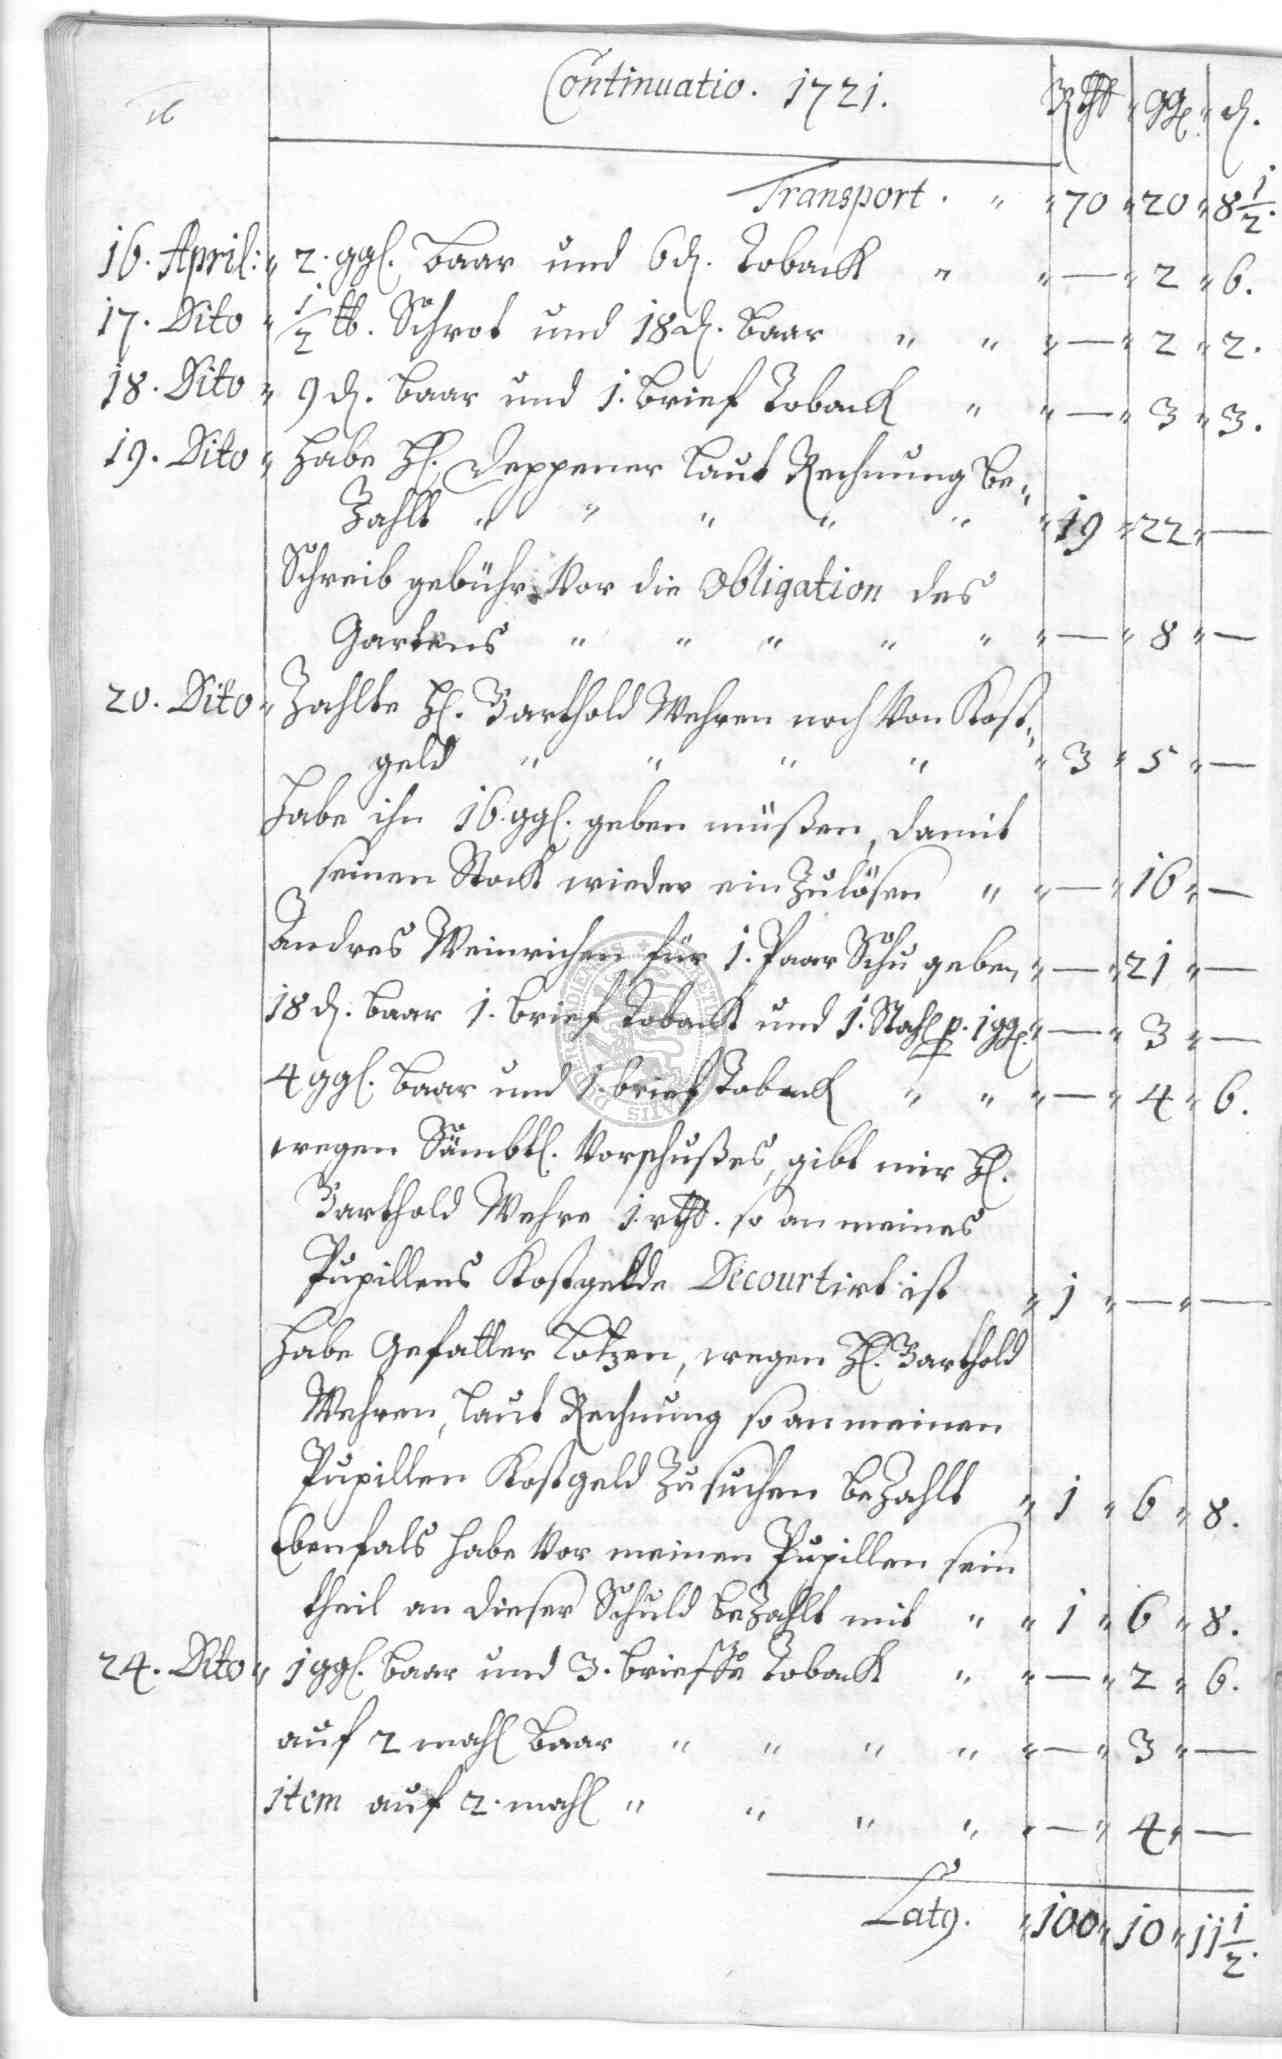 16
Continuatio. 1721. Rthl " ggl " d.
Transport. " " 70 " 20 " 8 1/2.
16. April: " 2. ggl. baar und 6 d. Toback " " — " 2 " 6.
17. Dito " 1/2 tb. Schrot und 18 d. baar " " " — " 2 " 2.
18. Dito " 9 d. baar und 1. brief Toback " " — " 3 " 3.
19. Dito " habe H. Deppener laut Rechnung be-
zahlt " " " " " " 19 " 22 " —
Schreib gebühr vor die Obligation des
Gartens " " " " " " — " 8 " —
20. Dito " Zahlte H. Barthold Wehren noch von Kost-
geld " " " " " 3 " 5 " —
habe ihn 16. ggl. geben müßen, damit
seinen Stock wieder ein zulösen " " — " 16 " —
Andres Weinrichen für 1. Paar Schu geben " — " 21 " —
18 d. baar 1. brief Toback und 1. Stahl p. 1 ggl. " — " 3 " —
4 ggl. baar und 1. brief Toback " " " — " 4 " 6.
wegen Sämbtl. Vorschußes, gibt mir H.
Barthold Wehre 1. rthl. so an meines
Pupillens Kostgelde Decourtirt ist " 1 " — " —
habe Gefatter Lotzen, wegen H. Barthold
Wehren, laut Rechnung so an meinen
Pupillen Kostgeld zu suchen bezahlt " 1 " 6 " 8.
Ebenfals habe vor meinen Pupillen sein
theil an dieser Schuld bezahlt mit " " 1 " 6 " 8.
24. Dito " 1 ggl. baar und 3. brieffe Toback " " — " 2 " 6.
auf 2 mahl baar " " " " " — " 3 " —
item auf 2. mahl " " " " " — " 4 " —
Lat9. " 100 " 10 " 11 1/2.